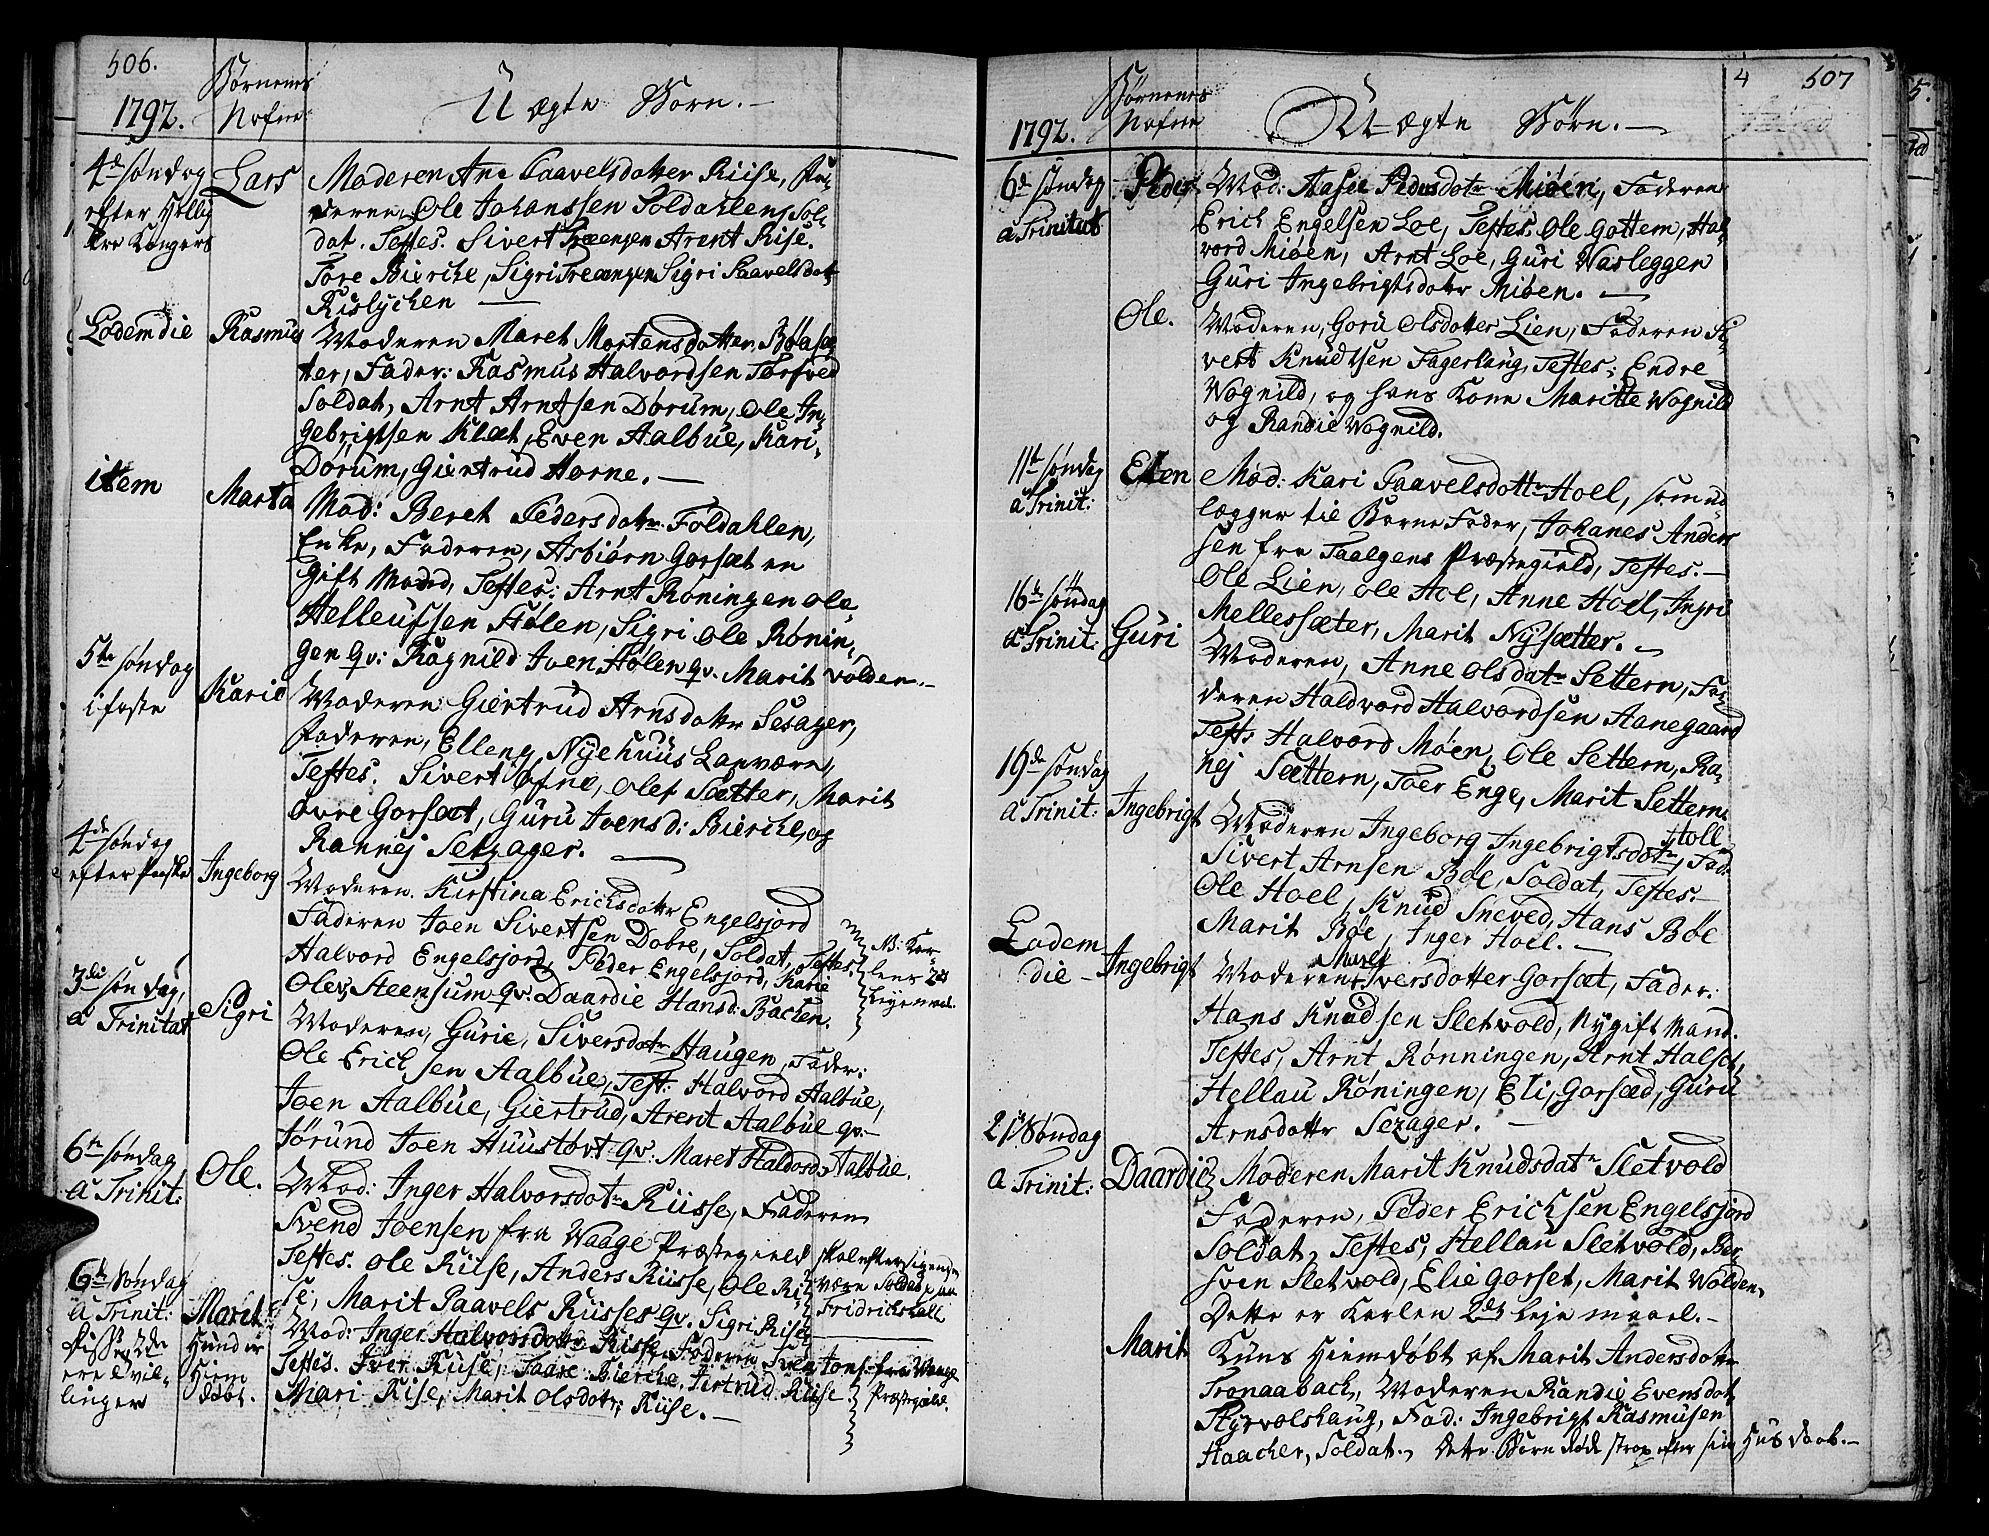 506.
1792.
Børnenes
Nafne
Uægte Børn.
4de Søndag
efter Hellig
tre Kongers
Lars
Moderen Ane Paavelsdotter Riise, Fa-
deren, Ole Johanssen Foldahlen, Sol-
dat. Testes. Sivert Træengen Arent Rise.
Tore Bierche, Sigri Træengen Sigri Paavelsdotr
Rislychen
Eodem die
Rasmus
Moderen Maret Mortensdotter Bøasæ-
ter, Fader: Rasmus Halvordsen Torsved
Soldat, Arnt Arntsen Dorum, Ole In-
gebrigtsen Klæt, Even Aalbue, Kari
Dorum, Giertrud Horne.
item
Marta
Mod: Beret Pedersdotr. Foldahlen,
Enke, Faderen, Asbiørn Gorsæt en
gift Mand, Testes: Arnt Røningen Ole
Helleufsen Hølen, Sigri Ole Rønin-
gen qv: Ragnild Joen Hølen qv. Marit Volden.
5te Søndag
i faste
Karie
Moderen Giertrud Arnsdottr Sesager,
Faderen, Elleng Nyehuus Landværn,
Testes. Sivert Ofne, Olef Sætter, Marit
øvre Gorsæt, Guru Joensd: Bierche, og
Rannej Setzager.
4de Søndag
efter Paaske
Ingeborg
Moderen. Kirstina Ericksdottr Engelsjord
Faderen Joen Sivertsen Dobre, Soldat, Testes.
Halvord Engelsjord, Peder Engelsjord, Karie
Ole Steensum qv. Daardie Hansd: Bachen.
NB: Kar-
lens 2det
Lejermaal.
3die Søndag,
a Trinitat.
Sigri
Moderen, Gurie, Siversdotr Haugen, Fader:
Ole Erichsen Aalbue, Test: Halvord Aalbue,
Joen Aalbue, Giertrud, Arent Aalbue qv.
Jørund Joen Huustøvt qv: Maret Haldosd: Aalbue.
6te Søndag,
a Trinit:
Ole.
Mod: Inger Halvorsdotr Riisse, Faderen
Svend Joensen fra Waage Præstegield
Testes. Ole Riise, Anders Riisse, Ole Ri-
se, Marit Paavels Riisses qv. Sigri Rise
skal efter sigende
være Soldat paa
Fridrichshall
6te Søndag
a Trinit:
Disse 2de
ere Tvil-
linger
Marit
Hund er
Hiem
døbt.
Mod: Inger Halvorsdottr Riisse, Faderen Sven Jons: fra Waage
Præstegield.
Testes. Iver Riise, Taare Bierche, Jertrud Riise
Mari Rise, Marit Olsdotr, Riise.
1792.
Børnenes
Nafne
Uægte Børn.
4
507
6de Søndag
a Trinitat
Peder
Mod: Aasee Pedersdotr Miøen, Faderen
Erich Engelsen Loe, Testes. Ole Gottem, Hal-
vord Miøen, Arnt Loe, Guri Wasleggen
Guri Ingebrigtsdottr Miøen.
Ole.
Moderen, Goru Olsdotter Lien, Faderen Si-
vert Knudtsen Fagerlaug, Testes: Endre
Wognild, og hans Kone Maritte Wognild
og Randie Wognild.
11te Søndag
a Trinit:
Ellen
Mod: Kari Paavelsdottr Hoel, som ud-
lægger til Barne Fader, Johanes Anders
sen fra Taalgens Præstegield, Testes.
Ole Lien, Ole Hol, Anne Hoel, Ingri
Mellessæter, Marit Nysætter.
16de Søndag
a Trinit:
Guri
Moderen, Anne Olsdatr Settern, Fa-
deren Haldvord Halvordsen Aanegaard
Test: Halvord Møen, Ole Settern, Ra-
nej Sættern, Toer Enge, Marit Settern.
19de Søndag
a Trinit:
Ingebrigt
Moderen Ingeborg Ingebrigtsdotr Holl, Fad:
Sivert Arnsen Bøe, Soldat, Testes.
Ole Hoel, Knud Sneved, Hans Bøe
Marit Bøe, Inger Hoel.
Eodem
die
Ingebrigt
Moderen Maret Iversdotter Gorsæt, Fader:
Hans Knudsen Sletvold, Nygift Mand.
Testes, Arnt Rønningen, Arnt Halset,
Hellau Røningen, Eli, Gorsæd, Guru
Arnsdottr Sezager.
21de Søndag
a Trinit:
Daardie
Moderen Marit Knudsdatr Sletvold
Faderen, Peder Ericksen Engelsjord
Soldat, Testes, Hellau Sletvold, Ber
sven Sletvold, Elie Gorset, Marit Wolden.
Dette er Karlens 2det Leje maal.
Marit
Kuns Hiemdøbt af Marit Andersdottr
Tronaaback, Moderen Randie Evensdotr
Styrvolshaug, Fad: Ingebrigt Rasmusen
Haacher, Soldat., Dette Barn døde strax efter sin Hus daab.